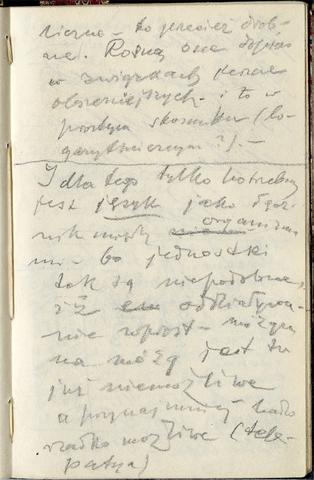 liczne – to przecież drob-
ne. Rosną one dopiero
w związkach
obszerniejszych – i to w
prostym stosunku (lo-
garytmicznym?). –
I dla tego tylko potrzebny
jest język jako łącz-
nik między organizma
mi – bo jednostki
tak są niepodobne,
iż oddziaływa-
nie wprost – mózgu
na mózg jest tu
już niemożliwe
a przynajmniej
rzadko możliwe (tele-
patya)